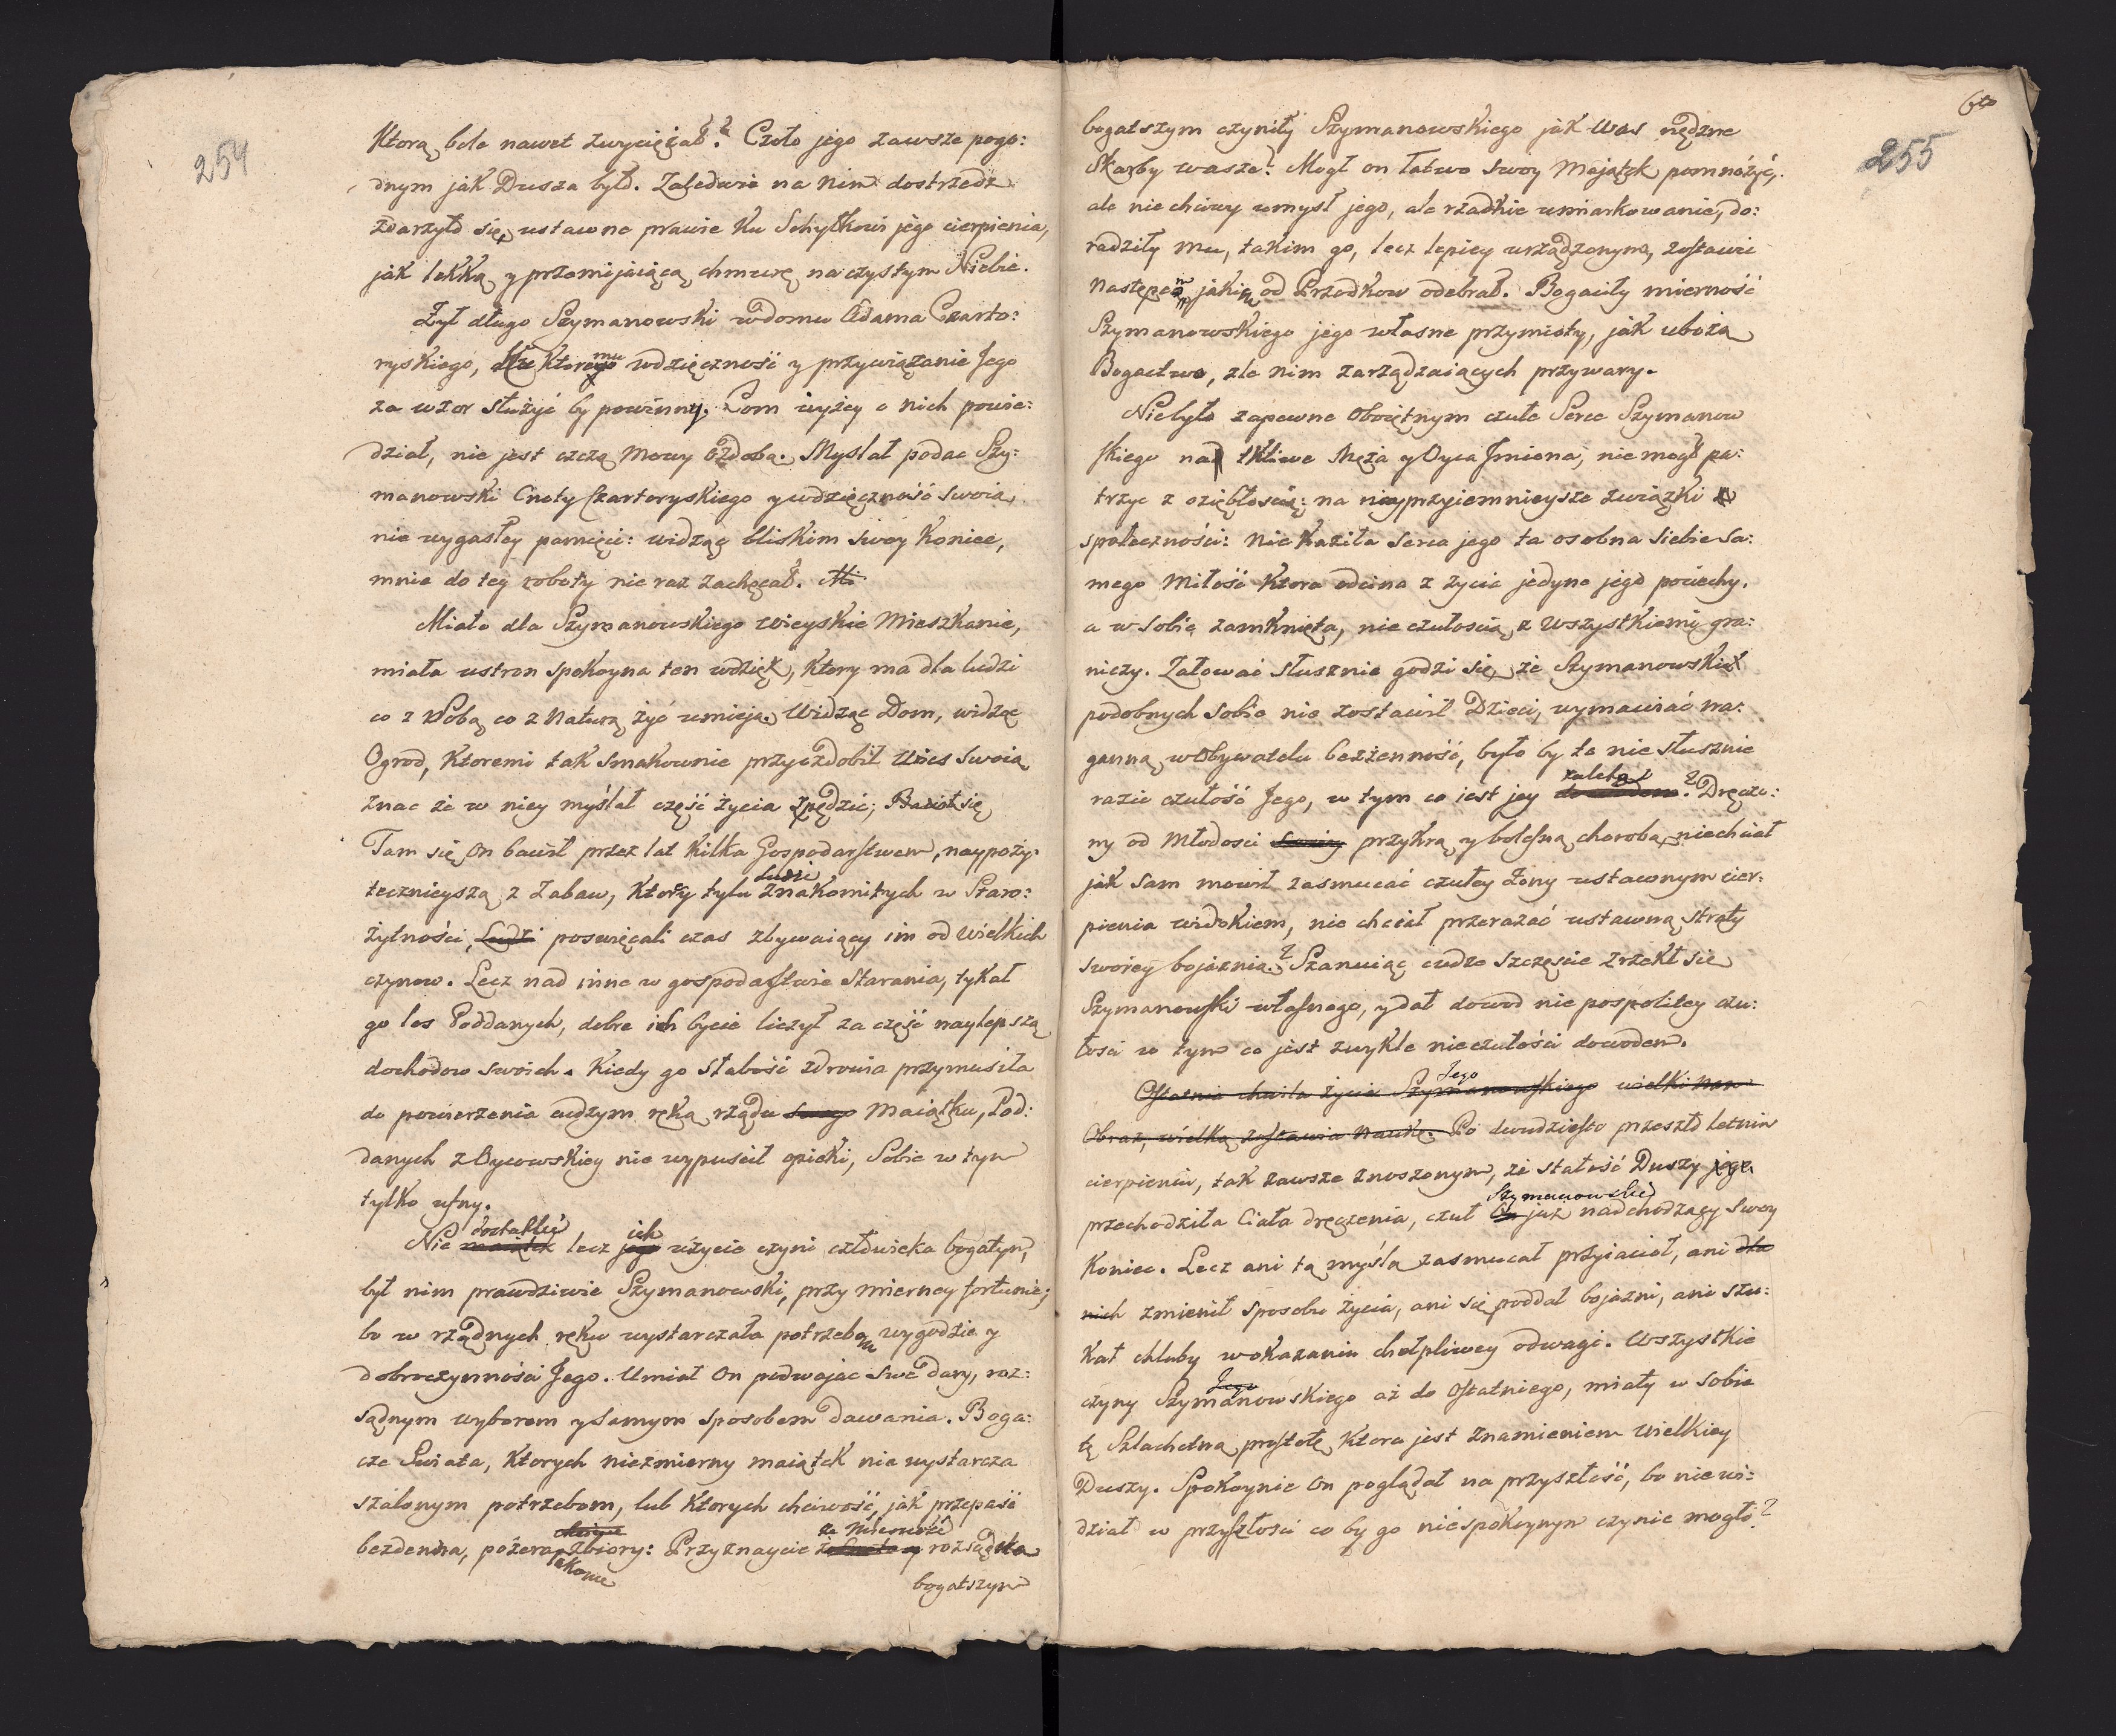 254
Ktorą bole nawet zwyciężał? Czoło jego zawsze pogo:
dnym jak Dusza było. Zaledwie na nim dostrzedz
zdarzyło się, ustawne prawie ku Schyłkowi jego cierpienia,
jak lekką y przemijaiącą chmurę na czystym Niebie.
Żył długo Szymanowski w domu Adama Czarto:
ryskiego, ku ktoremu wdzięczność y przywiązanie Jego
za wzor służyć by powinny. Com wyżey o nich powie:
dział, nie jest czczą Mowy Ozdobą. Myslał podac Szy:
manowski Cnoty Czartoryskiego y wdzięczność swoią,
nie wygasłey pamięci: widząc bliskim swoy Koniec,
mnie do tey roboty nie raz zachęcał. Mi
Miało dla Szymanowskiego wieyskie Mieszkanie,
miała ustron spokoyna ten wdzięk, ktory ma dla ludzi
co z Sobą co z Naturą żyć umieją. Widząc Dom, widząc
Ogrod, ktoremi tak smakownie przyozdobił Wies swoią
znac że w niey myślał część życia spędzić; Bawił się
Tam się On bawił przez lat kilka Gospodarstwem, naypoży:
tecznieyszą z Zabaw, ktory tylu Ludzi znakomitych w Staro:
żytności, Ludzi poswięcali czas zbywaiący im od wielkich
czynow. Lecz nad inne w gospodarstwie starania, tykał
go los Poddanych, dobre ich bycie liczył za część naylepszą
dochodow swoich. Kiedy go słabość zdrowia przymusiła
do powierzenia cudzym ręką rządu swego Maiątku, Pod:
danych z Oycowskiey nie wypuscił opieki, Sobie w tym
tylko ufny.
dostatki ich
Nie maiątek lecz jego użycie czyni człowieka bogatym,
był nim prawdziwie Szymanowski, przy mierney fortunie;
bo w rządnych ręku wystarczała potrzebom wygodzie y
dobroczynności Jego. Umiał On podwajac swe dary, roz:
sądnym wyborem y samym sposobem dawania. Boga:
cze Świata, ktorych niezmierny maiątek nie wystarcza
szalonym potrzebom, lub ktorych chciwość, jak przepaść
chciwe że Mierność
bezdenna, pożera zbiory: Przyznaycie y rozsądka
łakome
bogatszym
255
bogatszym czyniły Szymanowskiego jak Was nędzne
Skarby wasze? Mogł on łatwo swoy Majątek pomnożyć,
ale nie chciwy umysł jego, ale rzadkie umiarkowanie, do:
radziły mu, takim go, lecz lepiey urządzonym, zostawic
Następcom jakim od Przodkow odebrał. Bogaciły mierność
Szymanowskiego jego własne przymioty, jak ubożą
Bogactwo, zle nim zarządzaiących przywary.
Nie było zapewne Oboiętnym czułe Serce Szymanow
skiego na tkliwe Męża y Oyca Jmiona, nie mogł pa:
trzyc z oziębłoscią: na nayprzyiemnieysze związki
społeczności: nie kaziła serca jego ta osobna siebie sa:
mego Miłość ktora odcina z życia jedyne jego pociechy,
a w sobie zamknięta, nie czułoscią z wszystkiemi gra:
niczy. Załować słusznie godzi się że Szymanowski
podobnych Sobie nie zostawił Dzieci, wymawiać na:
ganną w Obywatelu bezżenność, było by to nie słusznie
zaletą?
razić czułość Jego, w tym co jest jey Dręczo:
ny od Młodosci swoiey przykrą y bolesną chorobą, niechciał
jak sam mowił zasmucać czułey Zony ustawnym cier:
pienia widokiem, nie chciał przerażać ustawną straty
swoiey bojaźnią? Szanuiąc cudze szczęscie zrzekł sie
Szymanowski własnego, y dał dowod nie pospolitey czu:
łosci w tym co jest zwykle nieczułości dowodem.
Jego
Ostatnia chwila życia Szymanowskiego wielki nam
Obraz, wielką zostawia Naukę. Po dwudziesto przeszło letnim
cierpieniu, tak zawsze znoszonym, że stałość Duszy jego
Szymanowski
przechodziła Ciała dręczenia, czuł On już nadchodzący swoy
Koniec. Lecz ani tą myślą zasmucał przyiacioł, ani dla
nich zmienił sposobu życia, ani się poddał bojaźni, ani szu:
kał chluby w okazaniu chełpliwey odwagi. Wszystkie
Jego
czyny Szymanowskiego aż do Ostatniego, miały w sobie
tę Szlachetną prostotę ktora jest znamieniem Wielkiey
Duszy. Spokoynie On poglądał na przyszłość, bo nie wi:
dział w przyszłości co by go niespokoynym czynic mogło?